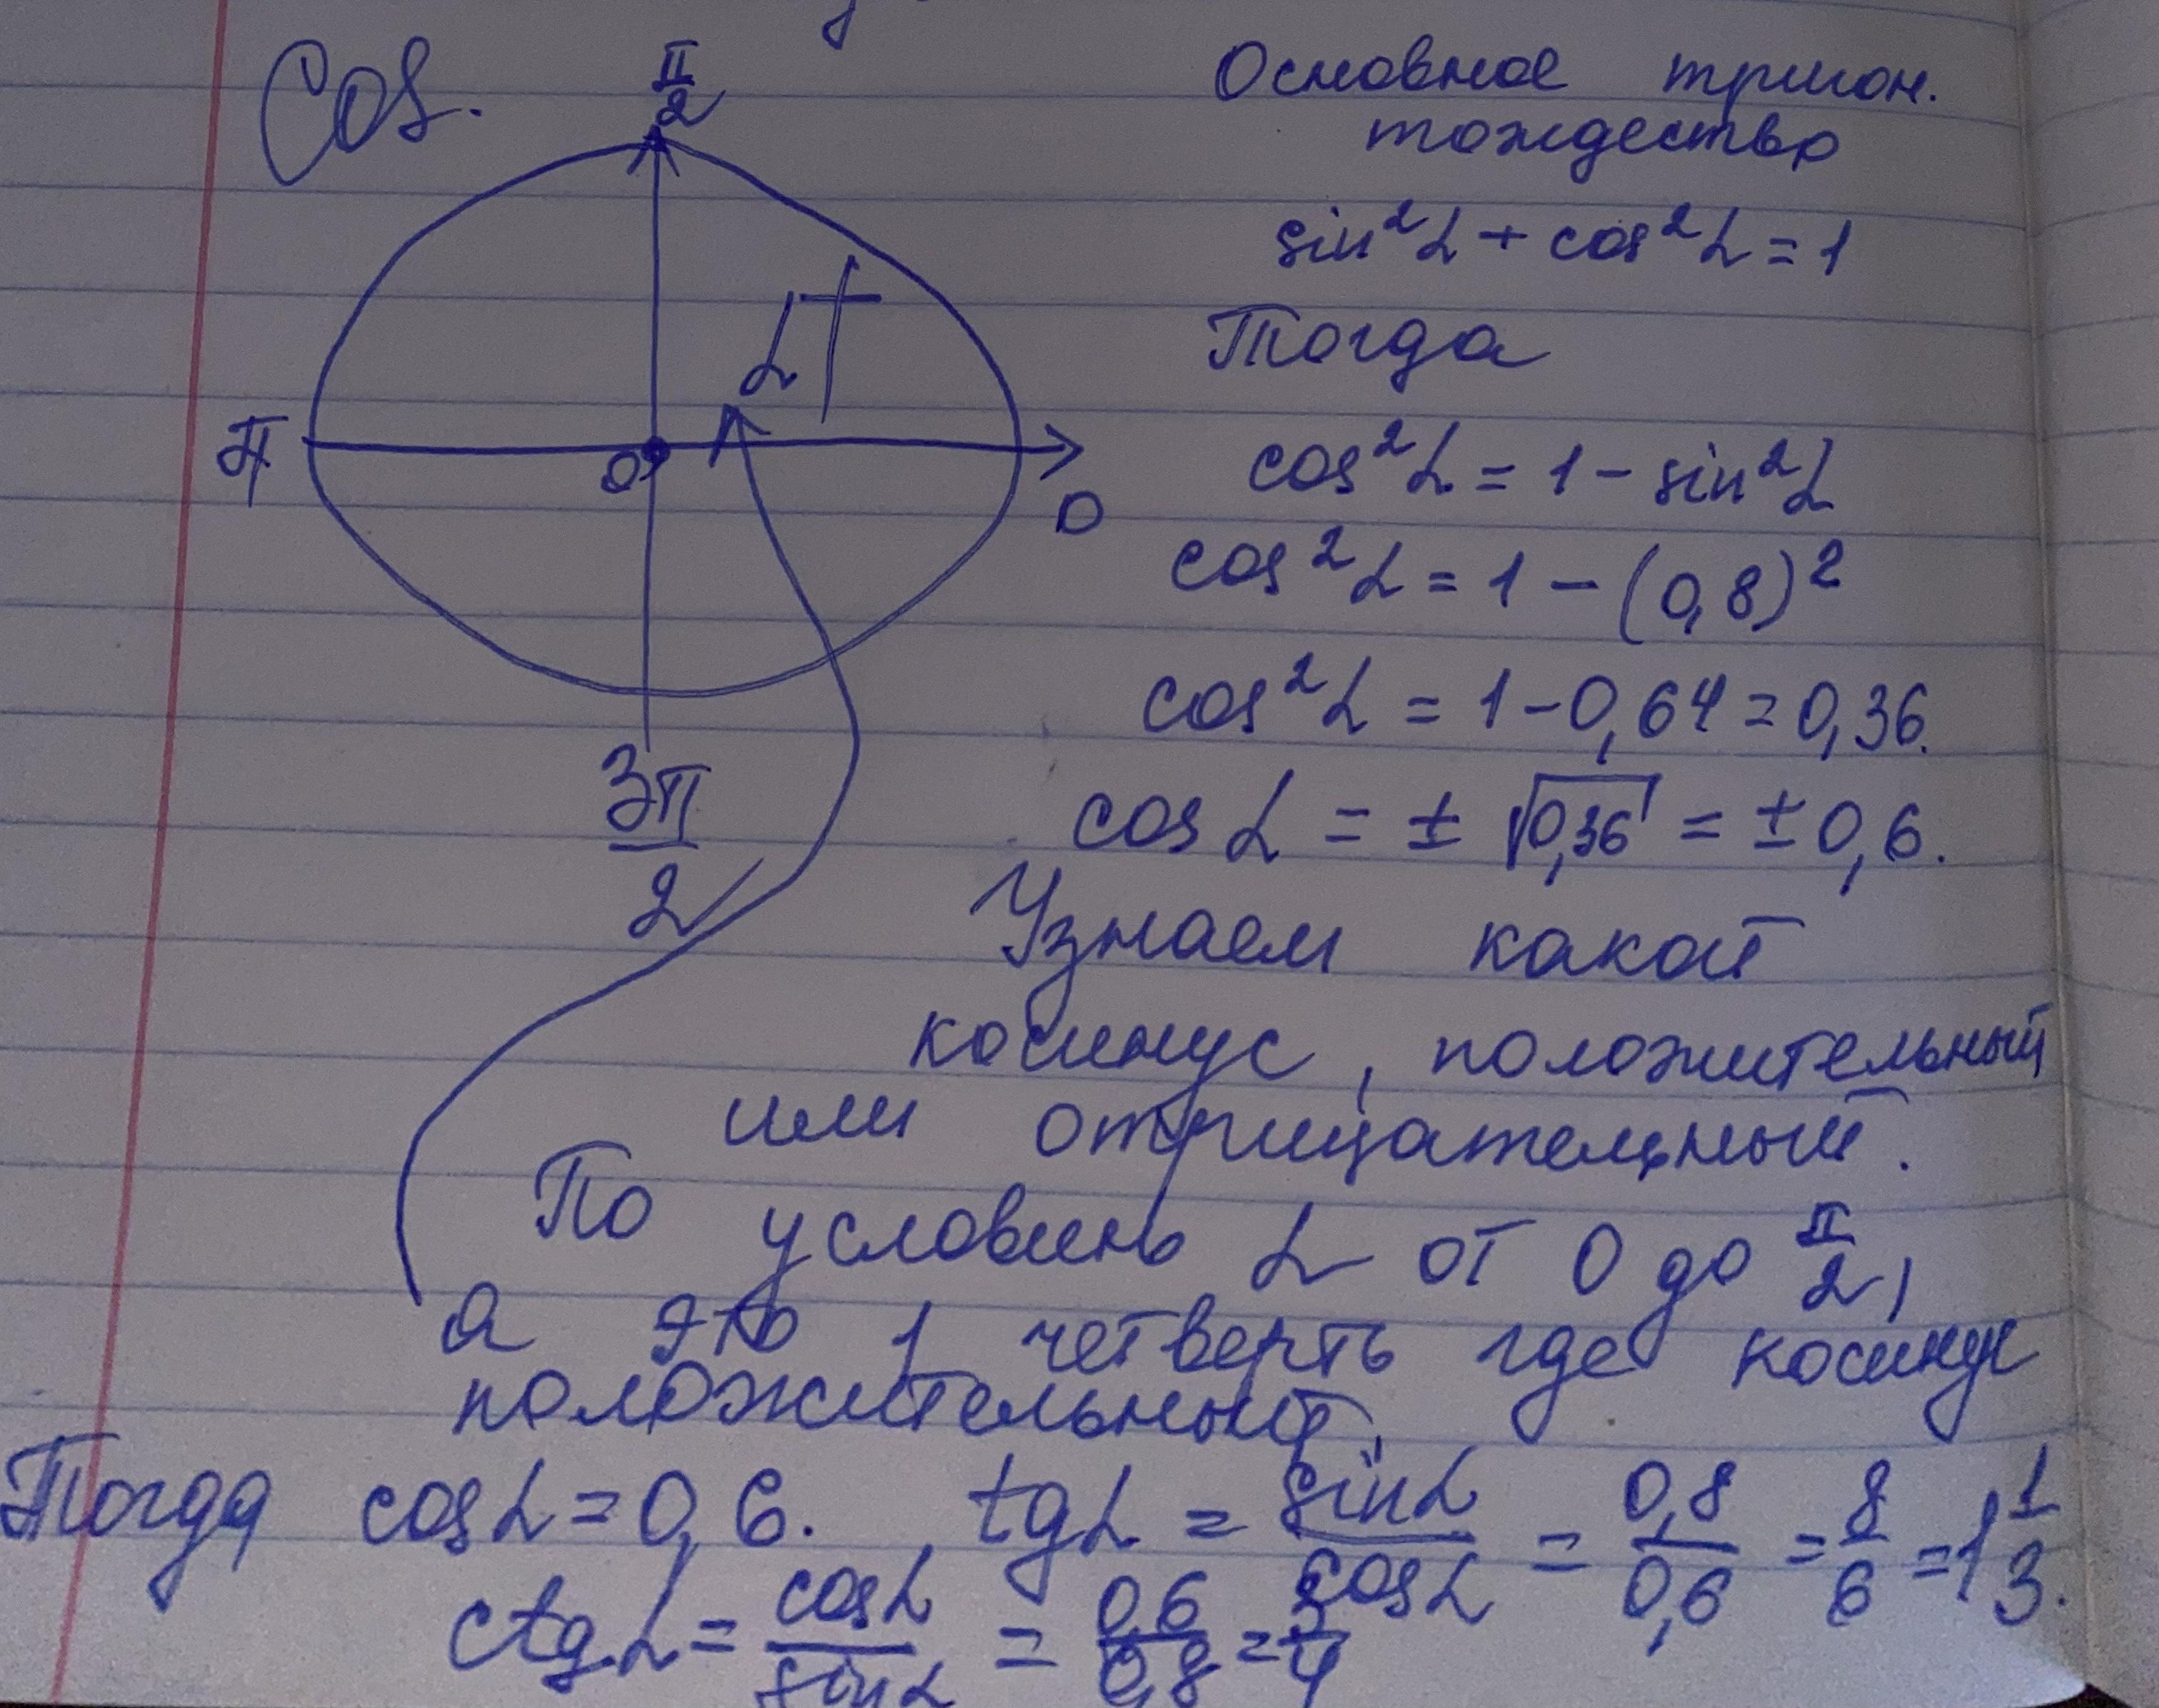 Cos.
π/2
π
0
0
α +
3π/2
Основное тригон.
тождество
sin²α + cos²α = 1
Тогда
cos²α = 1 - sin²α
cos²α = 1 - (0,8)²
cos²α = 1 - 0,64 = 0,36.
cos α = ± √0,36 = ± 0,6.
Узнаем какой
косинус, положительный
или отрицательный.
По условию α от 0 до π/2,
а это 1 четверть где косинус
положительный.
Тогда cosα = 0,6. tgα = sinα/cosα = 0,8/0,6 = 8/6 = 1 1/3.
ctgα = cosα/sinα = 0,6/0,8 = 3/4